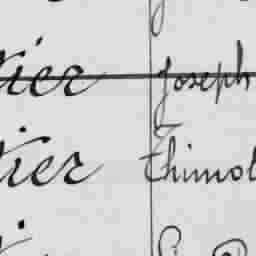 tier Joseph
tier Thimol